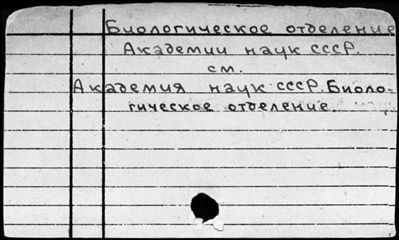 Биологическое отделение
Академии наук СССР.
см.
Академия наук СССР. Биоло-
гическое отделение.